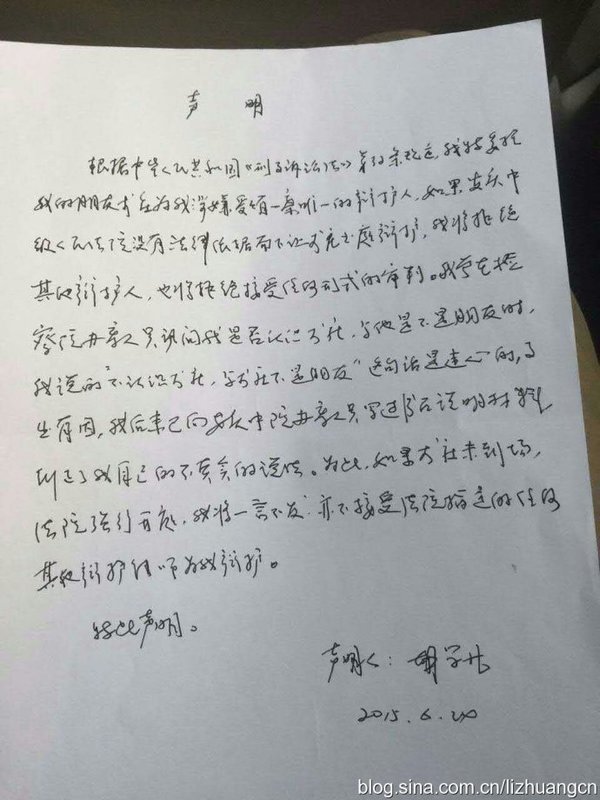 声 明
根据中华人民共和国《刑事诉讼法》第33条规定,我特委托
我的朋友 在为我涉嫌受贿一案唯一的辩护人,如果安庆中
级人民法院没有法律依据而不让 出庭辩护,我将拒绝
其他辩护人,也将拒绝接受任何形式的审判。我曾在检
察院办案人员讯问我是否认识 ,与他是不是朋友时,
我说的"不认识 ,与 不是朋友"这句话是违心的,事
出有因,我后来已向安庆中院办案人员写过书面说明材料,
纠正了我自己的不真实的说法。为此,如果 未到场,
法院强行开庭,我将一言不发,亦不接受法院指定的任何
其他辩护律师为我辩护。
特此声明。
声明人:胡
2015.6.20
blog.sina.com.cn/lizhuangcn